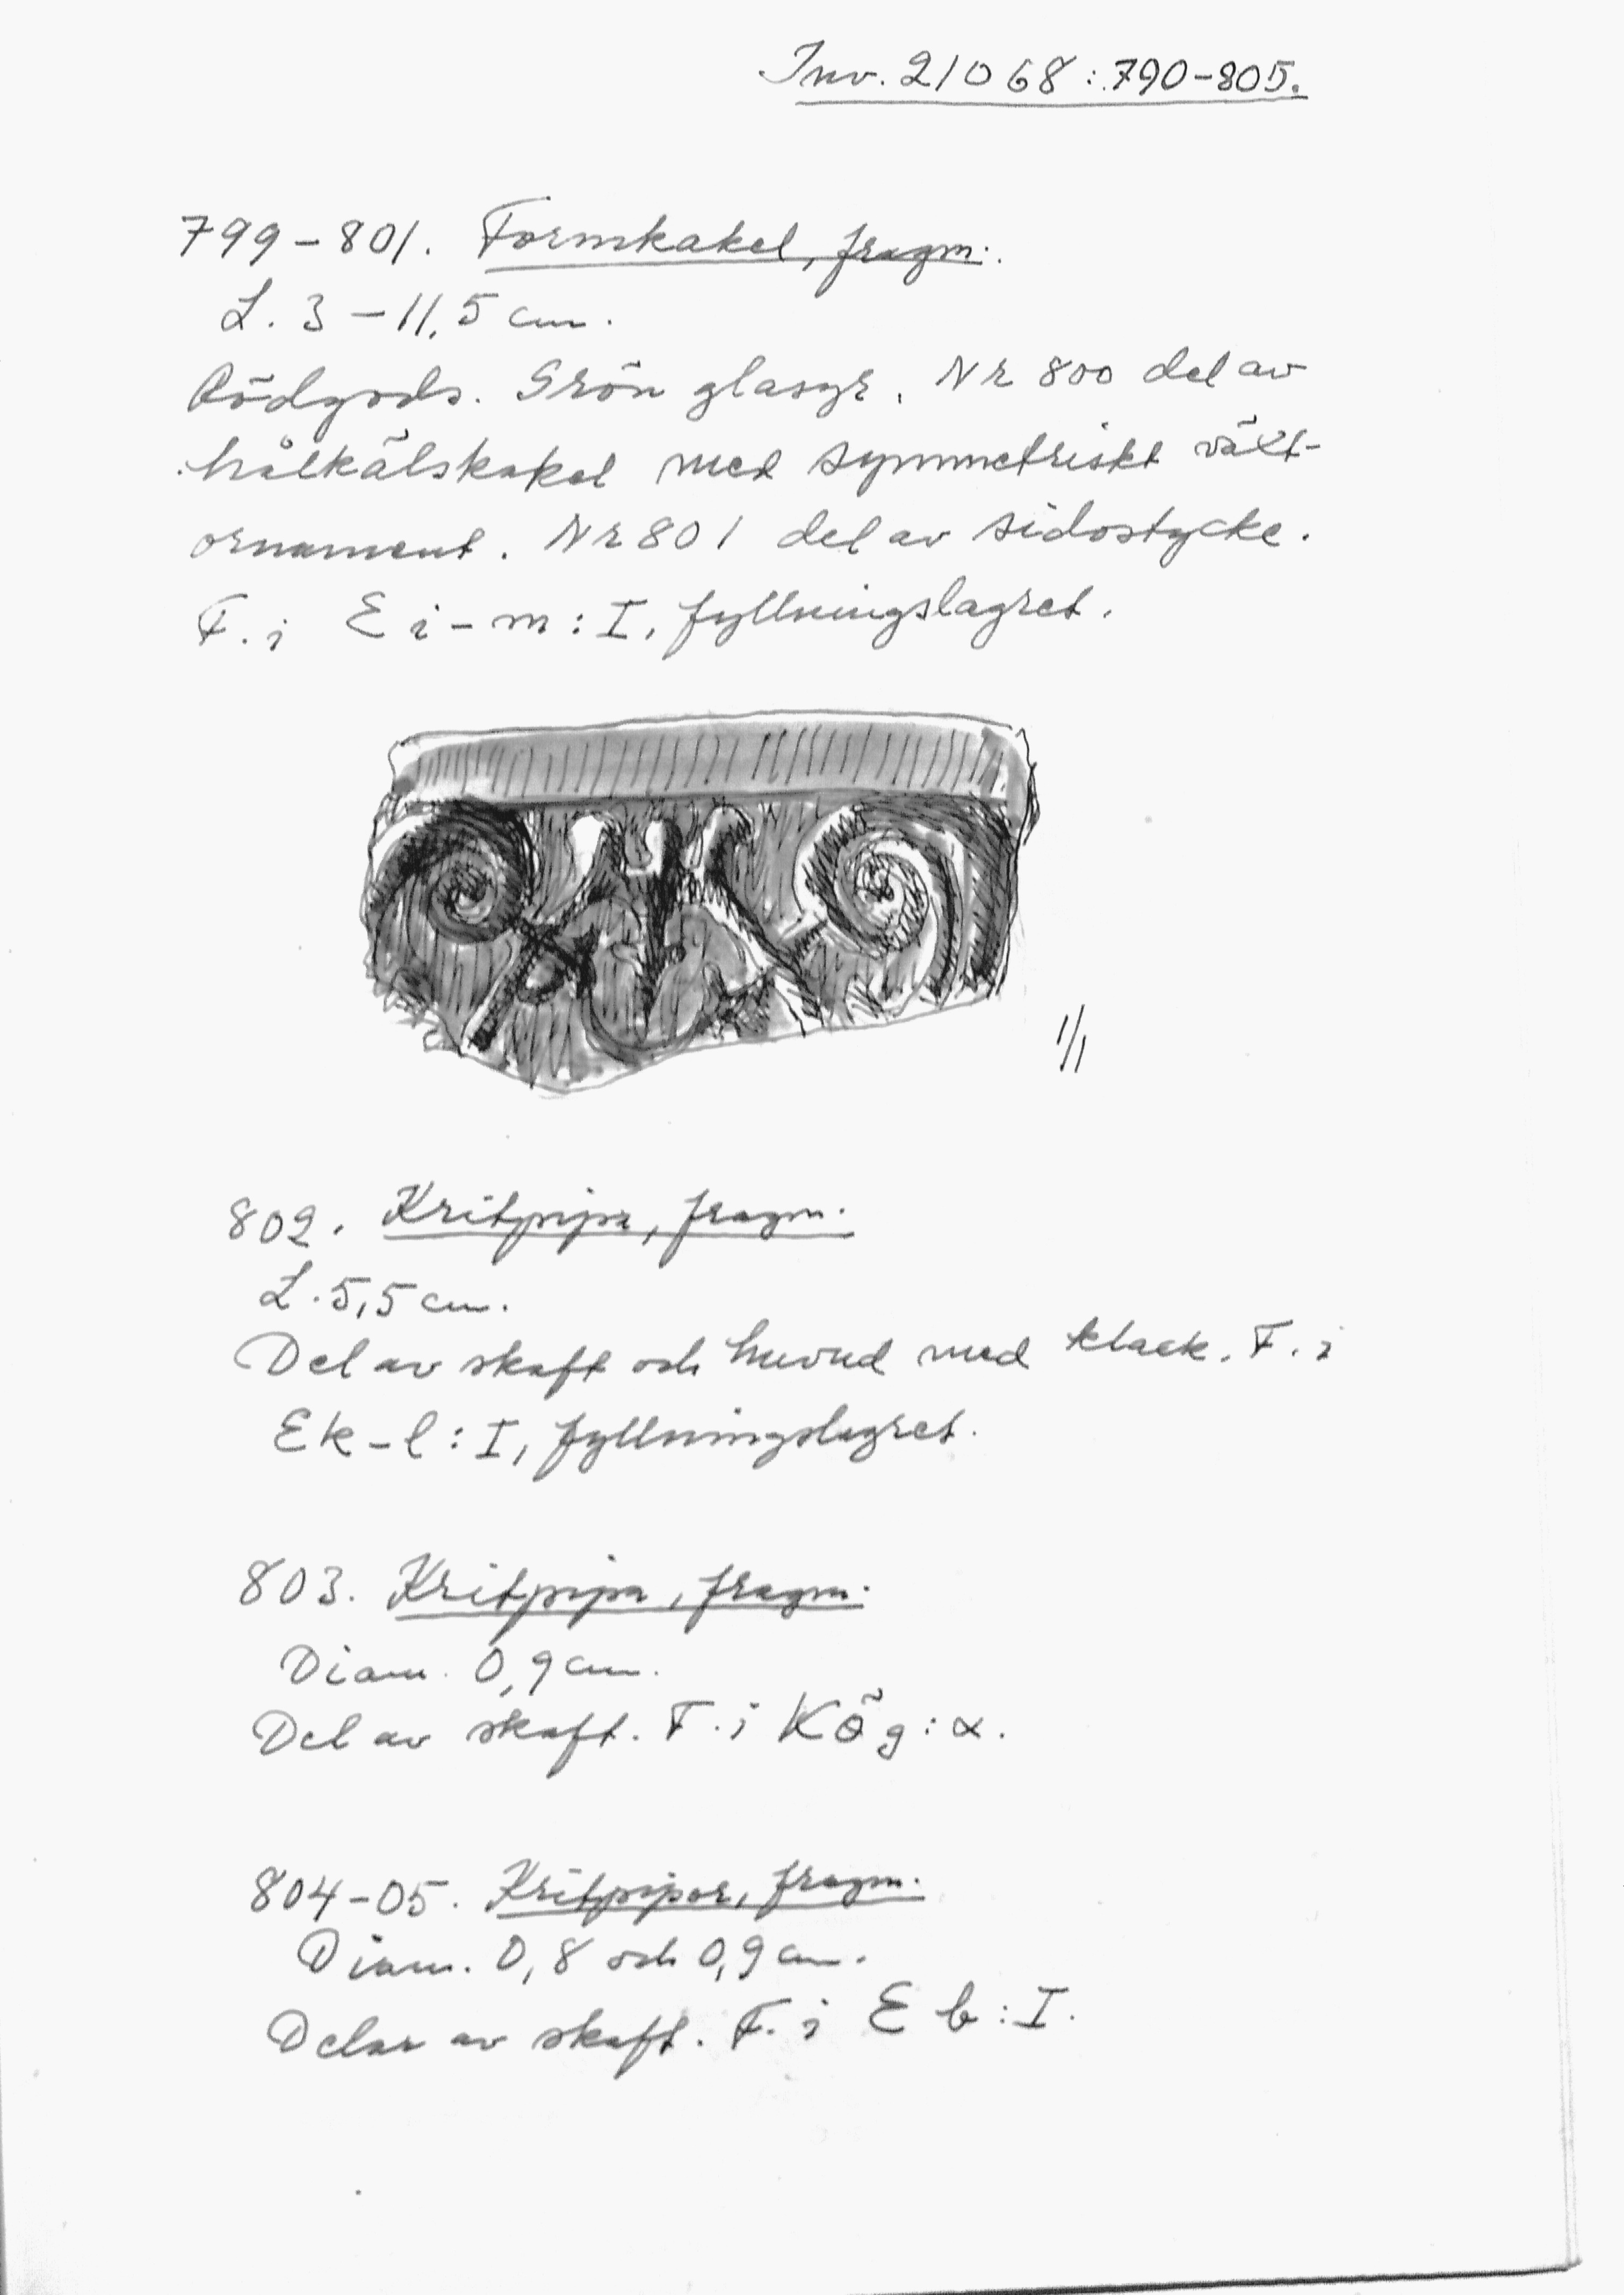 Inv. 21068:790-805.
799-801. Formkakel, fragm.
L. 3-11,5 cm.
Rödgods. Grön glasyr. Nr 800 del av
hålkälskakel med symmetriskt växt-
ornament. Nr 801 del av sidostycke.
F. i E i-m:I, fyllningslagret.
1/1
802. Kritpipa, fragm.
L. 5,5 cm.
Del av skaft och huvud med klack. F. i
E k-l:I, fyllningslagret.
803. Kritpipa, fragm.
Diam. 0,9 cm.
Del av skaft. F. i KÖ g:α.
804-05. Kritpipor, fragm.
Diam. 0,8 och 0,9 cm.
Delar av skaft. F. i E b:I.